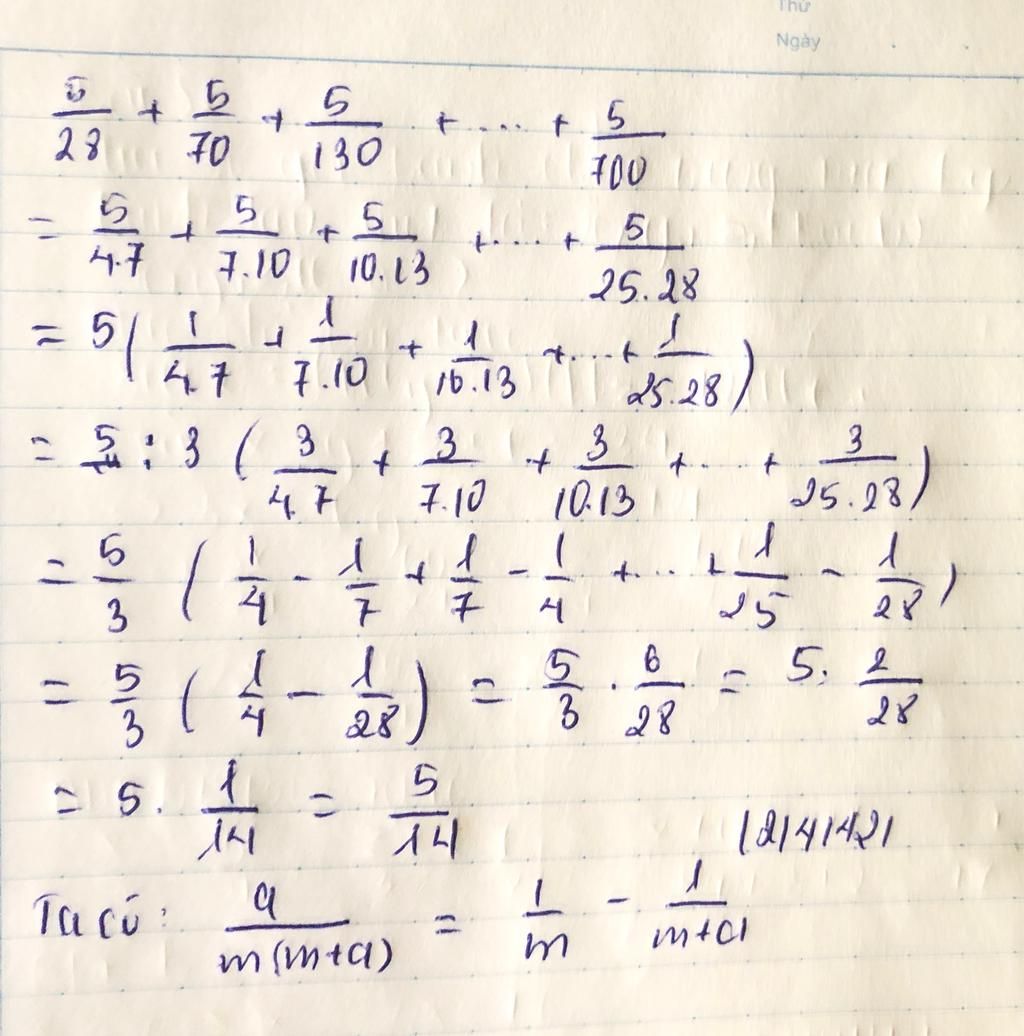 Thứ
Ngày
5/28 + 5/70 + 5/130 + .... + 5/700
= 5/4.7 + 5/7.10 + 5/10.13 + .... + 5/25.28
= 5( 1/4.7 + 1/7.10 + 1/10.13 + ... + 1/25.28 )
= 5 : 3 ( 3/4.7 + 3/7.10 + 3/10.13 + .... + 3/25.28 )
= 5/3 ( 1/4 - 1/7 + 1/7 - 1/4 + ... + 1/25 - 1/28 )
= 5/3 ( 1/4 - 1/28 ) = 5/3 . 6/28 = 5. 2/28
= 5. 1/14 = 5/14
Ta có: a/m(m+a) = 1/m - 1/m+a